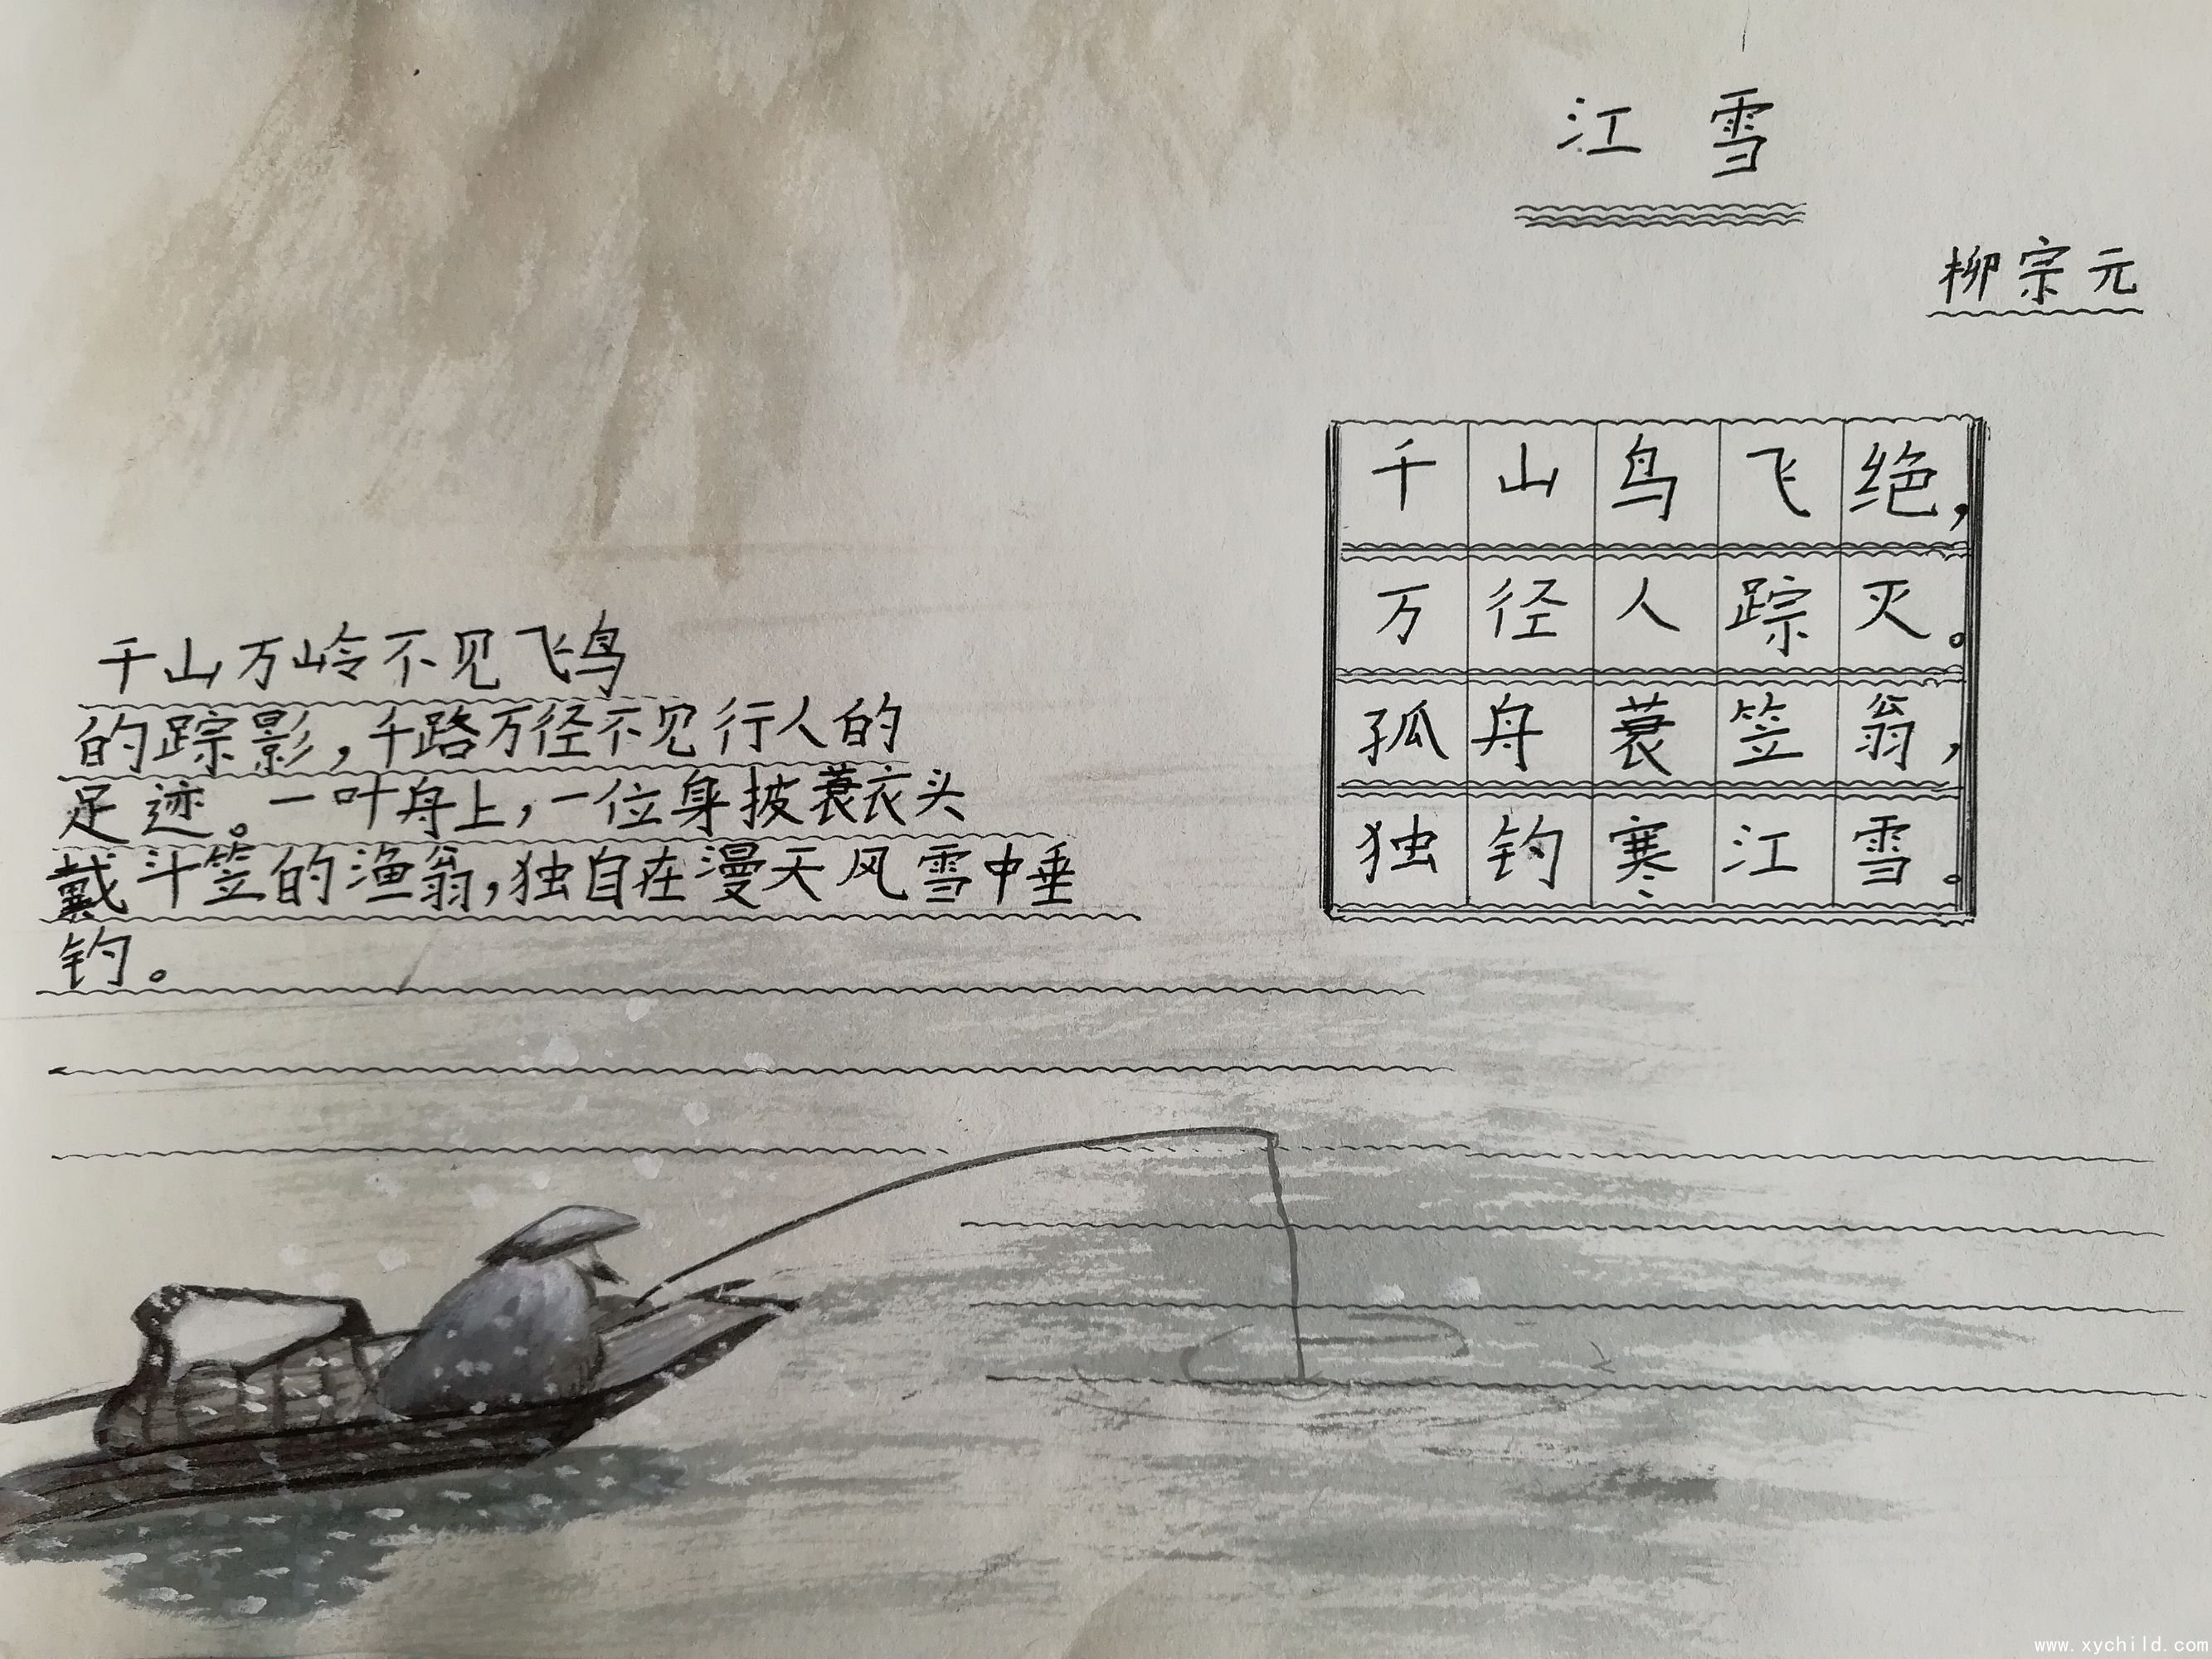 江雪
柳宗元
千山鸟飞绝，
万径人踪灭。
孤舟蓑笠翁，
独钓寒江雪。
千山万岭不见飞鸟
的踪影，千路万径不见行人的
足迹。一叶舟上，一位身披蓑衣头
戴斗笠的渔翁，独自在漫天风雪中垂
钓。
www.xychild.com